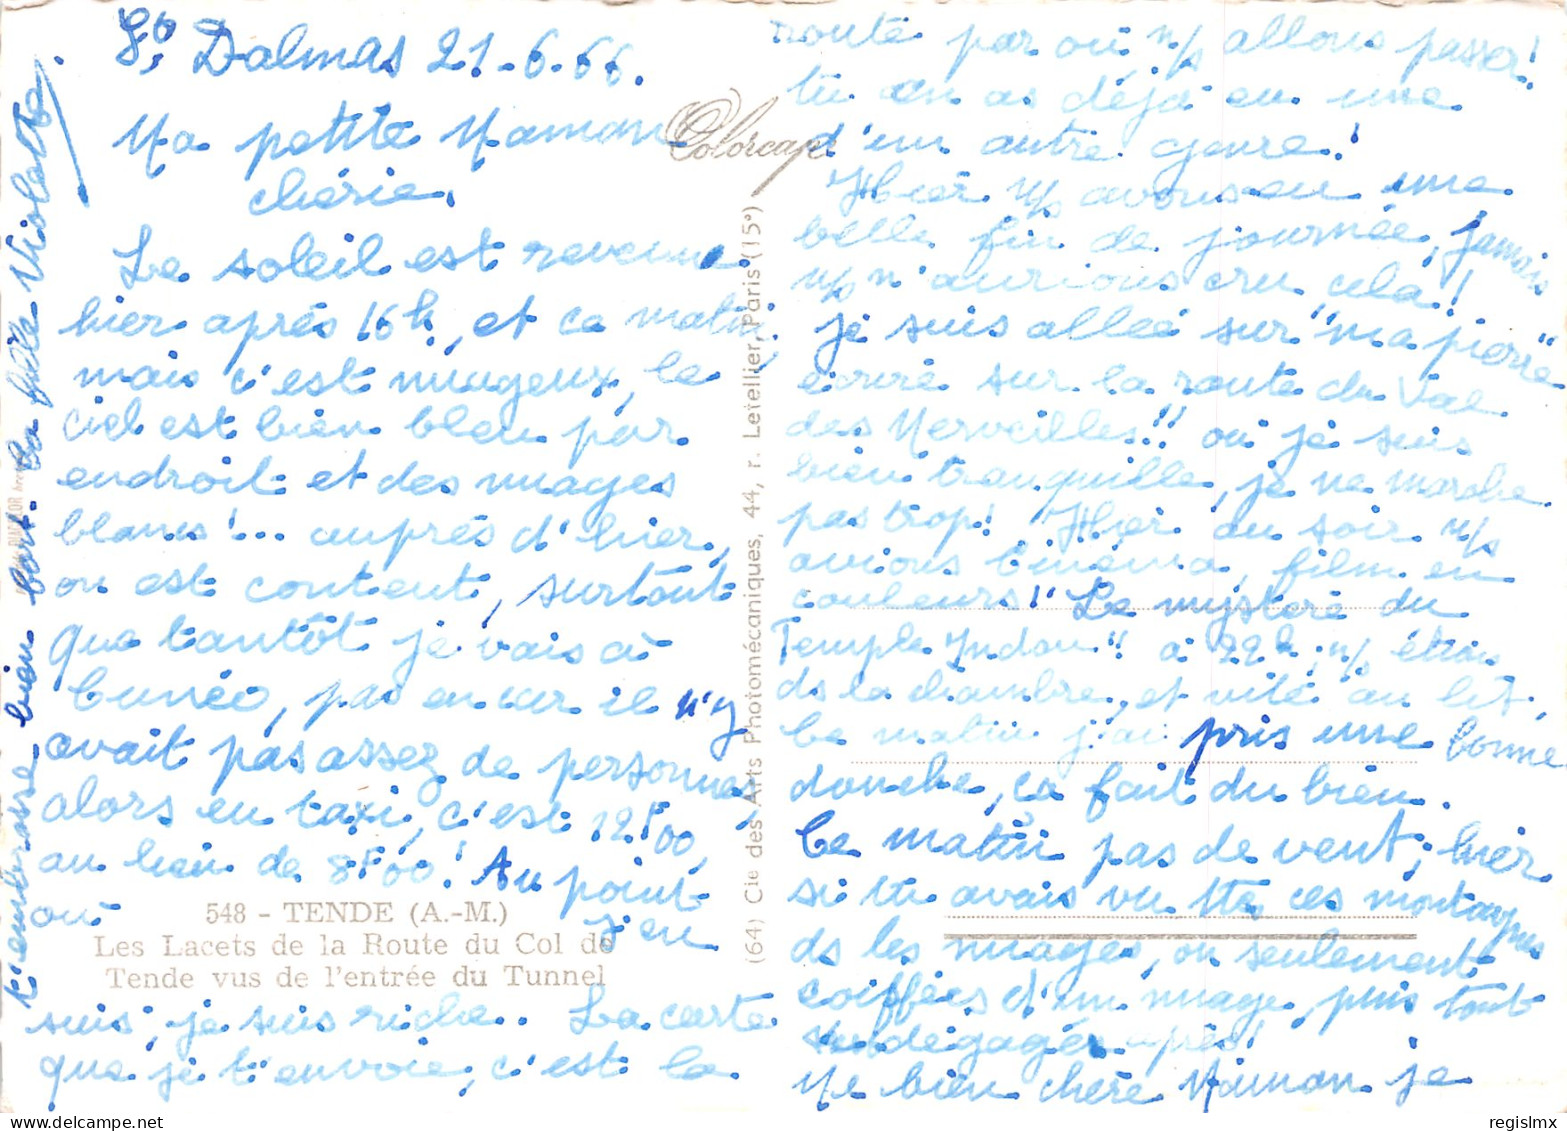 St Dalmas 21-6-66.
Ma petite Maman
chérie,
Le soleil est revenu
hier après 16h, et ce matin,
mais c'est nuageux, le
ciel est bien bleu par
endroit et des nuages
blancs!... auprès d'hier,
on est content, surtout
que tantôt je vais à
Cunéo, pas en car il n'y
avait pas assez de personnes,
alors en taxi, c'est 12F00,
au lieu de 8F00! Au point
où j'en
suis, je suis riche. La carte
que je t'envoie, c'est la
548 - TENDE (A.-M.)
Les Lacets de la Route du Col de
Tende vus de l'entrée du Tunnel
Colorcape
(64) Cie des Arts Photomécaniques, 44, r. Letellier, Paris (15e)
route par où n/s allons passer!
tu en as déjà eu une
d'un autre genre!
Hier n/s avons eu une
belle fin de journée, jamais
n/s n'aurions cru cela!
je suis allée sur "ma pierre"
écrire sur la route du Val
des Merveilles!! où je suis
bien tranquille, je ne marche
pas trop! Hier au soir n/s
avions Cinéma, film en
couleurs! "Le mystère du
Temple Indou" à 22h, n/s étions
ds la chambre, et vite au lit,
Ce matin j'ai pris une bonne
douche, ça fait du bien.
Ce matin pas de vent; hier
si tu avais vu ttes ces montagnes
ds les nuages, ou seulement
coiffées d'un nuage, puis tout
dégagé après!
Ma bien chère Maman je
t'embrasse bien fort. ta fille Violette.